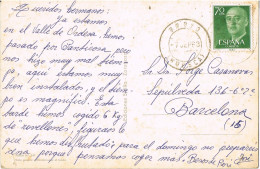 Queridos hermanos:
Ya estamos
en el Valle de Ordesa, hemos
pasado por Panticosa, pero
hizo muy mal tiem-
po, aquí estamos muy
bien instalados, y el tiem-
po es magnífico. Esta
tarde hemos cogido 6 Kg.
de rovellones, figuraros lo
que hemos disfrutado! para el domingo no preparéis
cena porque pensamos coger mas. Besos de Pepi, José
70
CTS
ESPAÑA
CORREOS
Sr. D. Jorge Casanovas
Sepúlveda 136-6º-2ª
Barcelona
(15)